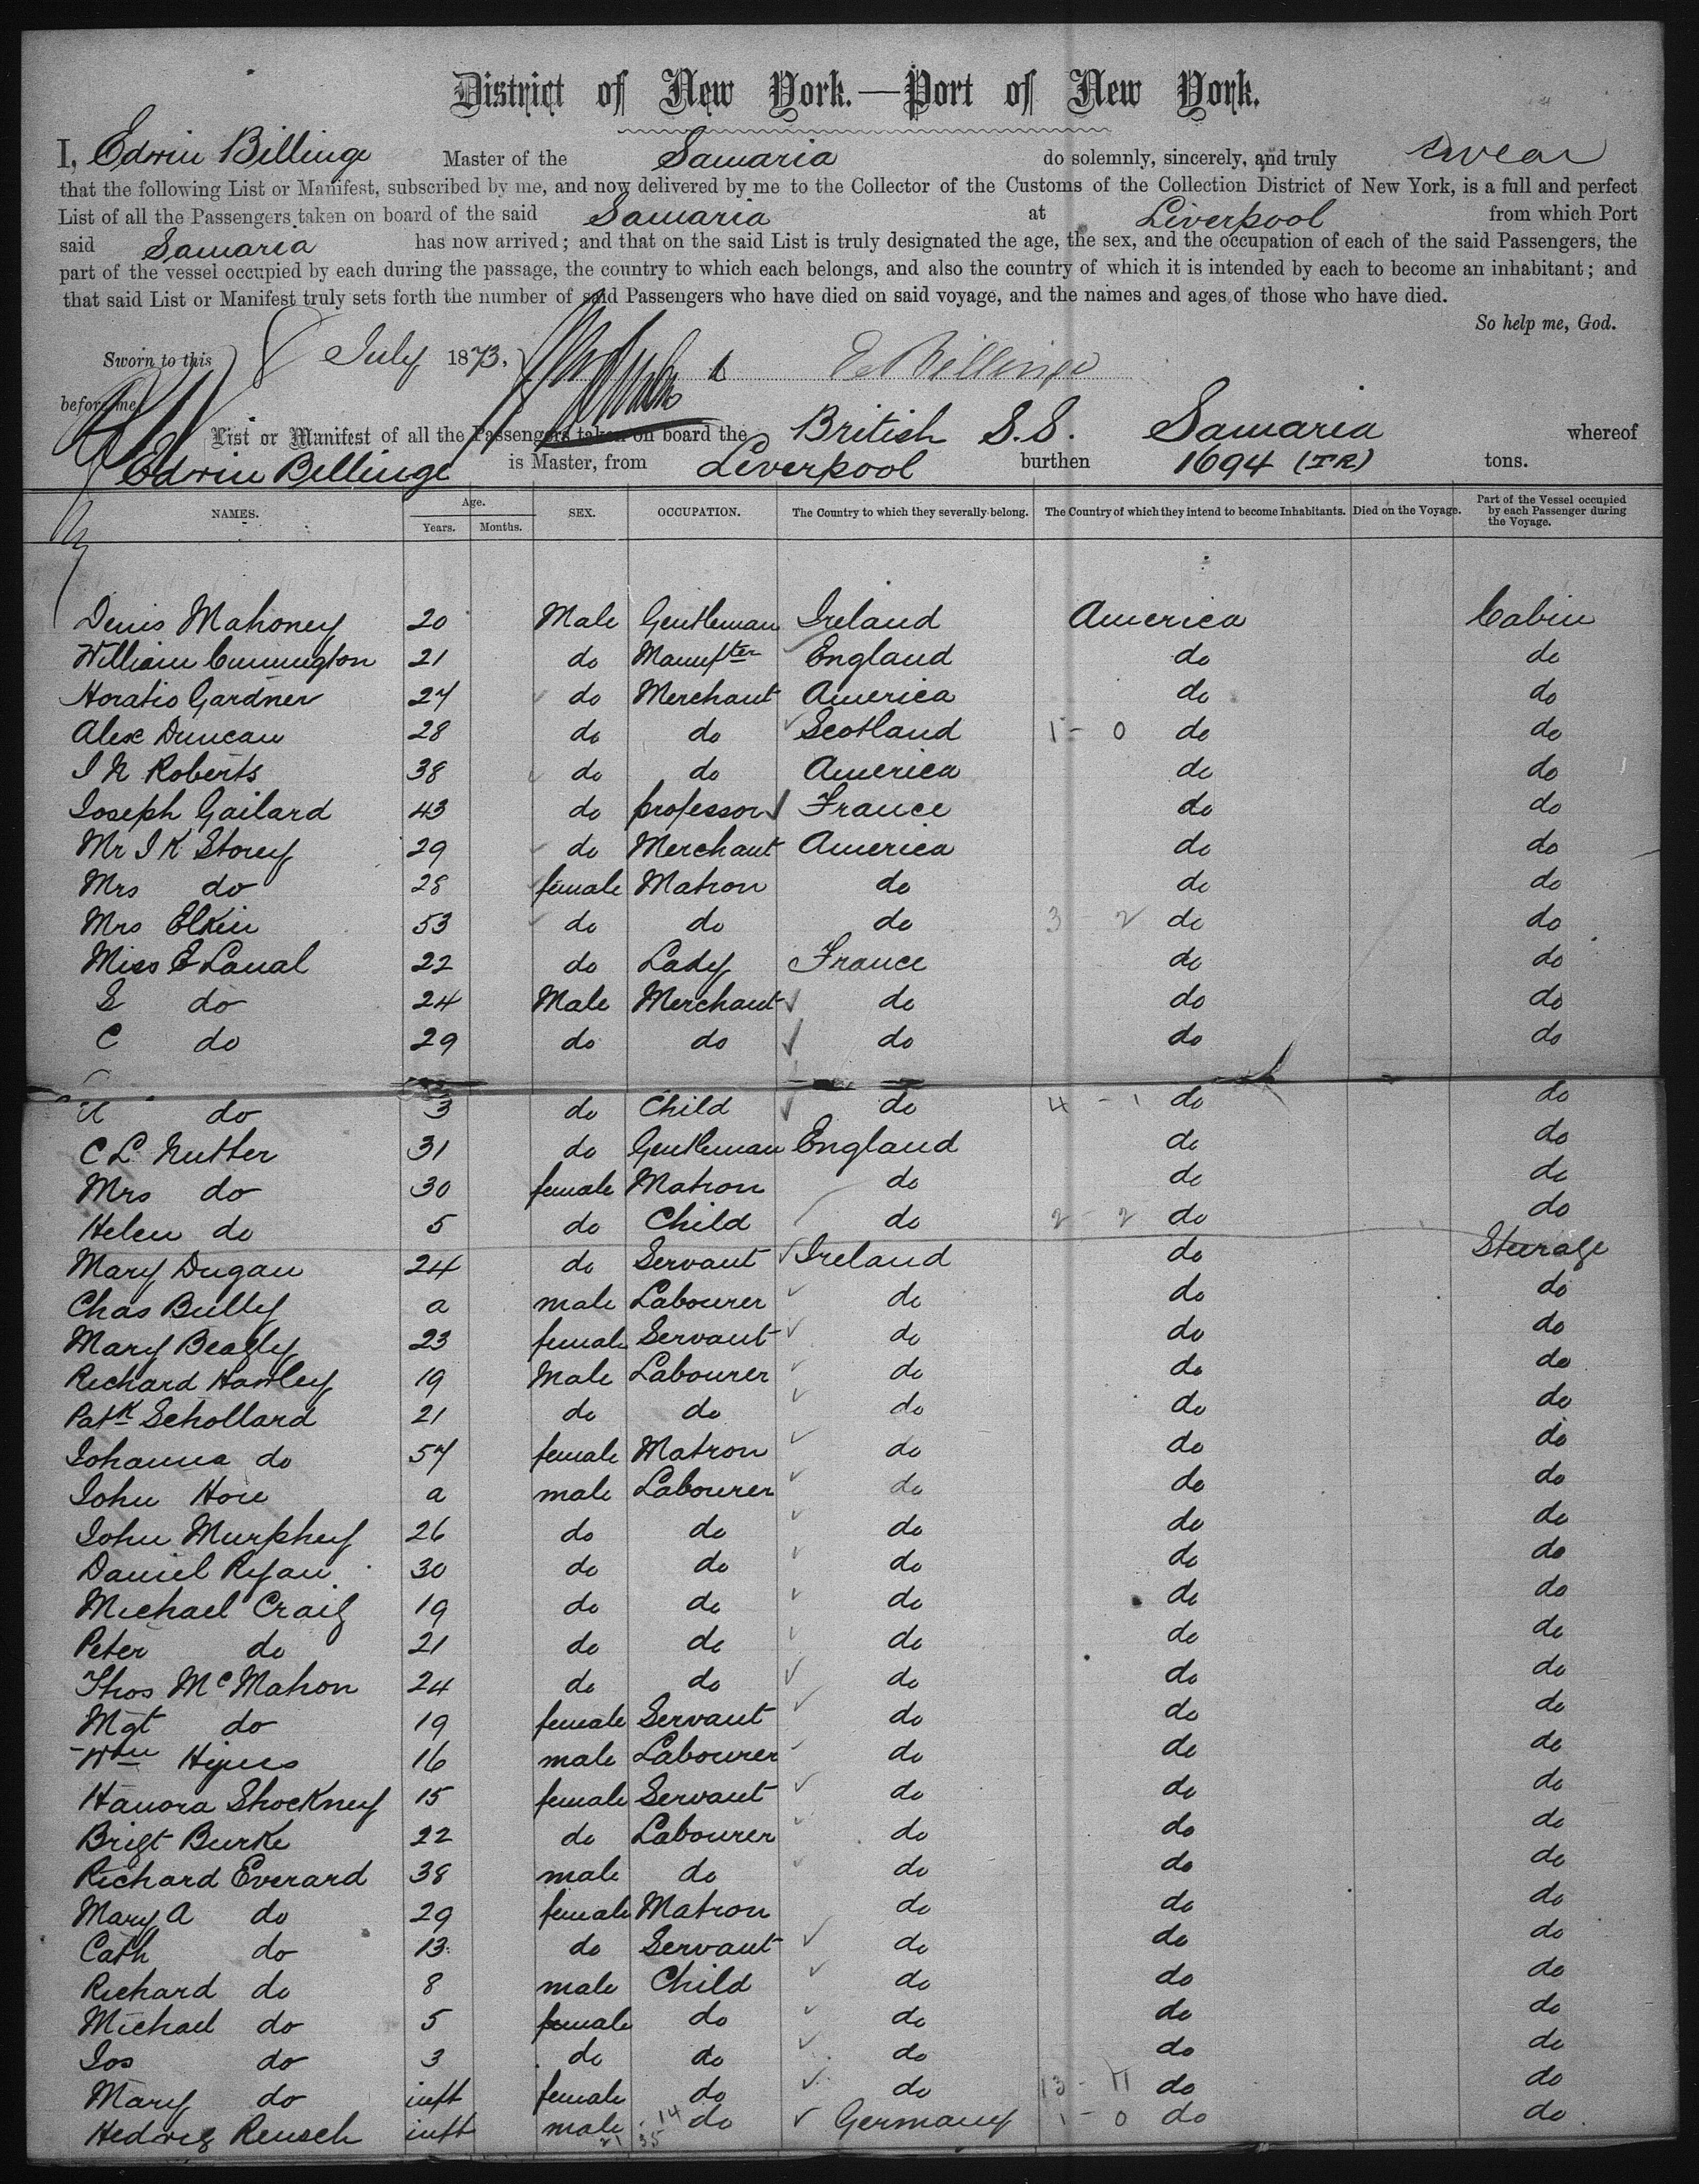 District of New York.—Port of New York.
I, Edwin Billinge Master of the Samaria do solemnly, sincerely, and truly swear
that the following List or Manifest, subscribed by me, and now delivered by me to the Collector of the Customs of the Collection District of New York, is a full and perfect
List of all the Passengers taken on board of the said Samaria at Liverpool from which Port
said Samaria has now arrived; and that on the said List is truly designated the age, the sex, and the occupation of each of the said Passengers, the
part of the vessel occupied by each during the passage, the country to which each belongs, and also the country of which it is intended by each to become an inhabitant; and
that said List or Manifest truly sets forth the number of said Passengers who have died on said voyage, and the names and ages of those who have died.
So help me, God.
Sworn to this 8 July 1873, E Billinge
before me
List or Manifest of all the Passengers taken on board the British S.S. Samaria whereof
Edwin Billinge is Master, from Liverpool burthen 1694 (TR) tons.
NAMES. Age. Years. Months. SEX. OCCUPATION. The Country to which they severally belong. The Country of which they intend to become Inhabitants. Died on the Voyage. Part of the Vessel occupied by each Passenger during the Voyage.
Denis Mahoney 20 Male Gentleman Ireland America Cabin
William Cunnington 21 do Manufter England do do
Horatio Gardner 27 do Merchant America do do
Alex Duncan 28 do do Scotland 1 - 0 do do
I N Roberts 38 do do America do do
Joseph Gailard 43 do professor France do do
Mr I K Storey 29 do Merchant America do do
Mrs do 28 female Matron do do do
Mrs Elkin 53 do do do 3 - 2 do do
Miss E Laval 22 do Lady France do do
S do 24 Male Merchant do do do
C do 29 do do do do do
do 3 do Child do 4 - 1 do do
C L Nutter 31 do Gentleman England do do
Mrs do 30 female Matron do do do
Helen do 5 do Child do 2 - 2 do do
Mary Dugan 24 do Servant Ireland do Steerage
Chas Bully a male Labourer do do do
Mary Beagly 23 female Servant do do do
Richard Hawley 19 Male Labourer do do do
Patk Schollard 21 do do do do do
Johanna do 57 female Matron do do do
John Hoie a male Labourer do do do
John Murphey 26 do do do do do
Daniel Ryan 30 do do do do do
Michael Craig 19 do do do do do
Peter do 21 do do do do do
Thos McMahon 24 do do do do do
Mgt do 19 female Servant do do do
Wm Hynes 16 male Labourer do do do
Hanora Shockney 15 female Servant do do do
Brigt Burke 22 do Labourer do do do
Richard Everard 38 male do do do do
Mary A do 29 female Matron do do do
Cath do 13 do Servant do do do
Richard do 8 male Child do do do
Michael do 5 female do do do do
Jos do 3 do do do do do
Mary do inft female do do 13 - 11 do do
Hedwig Reusch inft male do Germany 1 - 0 do do
14
21 35